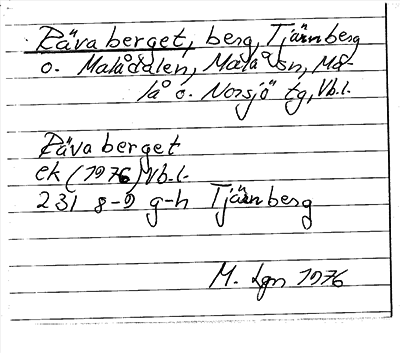 Räva berget, berg, Tjärnberg
o. Malådalen, Malå sn, Ma-
lå o. Norsjö tg, Vb.l.
Räva berget
ek (1976) Vb.l.
231 8-9 g-h Tjärnberg
M. Lgn 1976